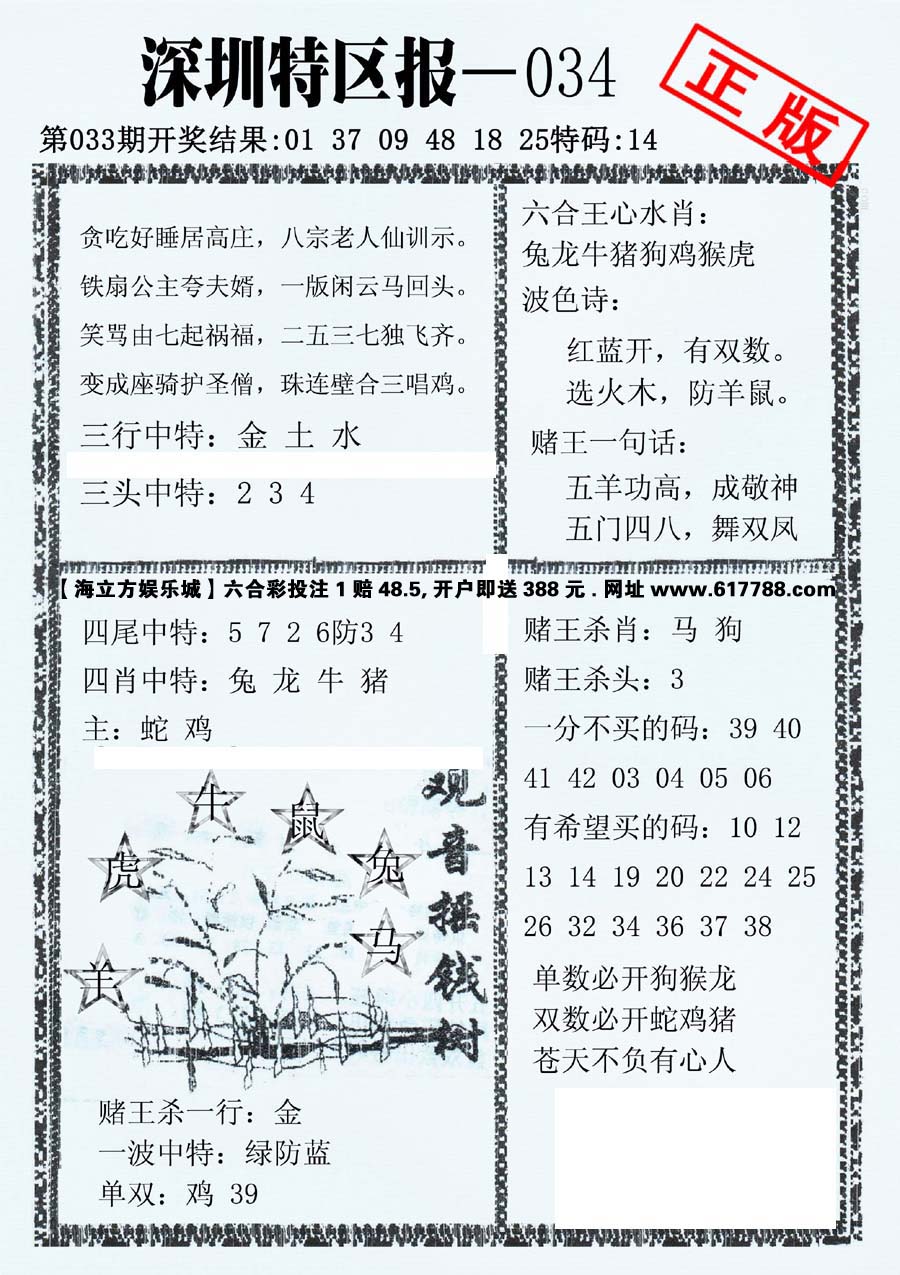 深圳特区报—034
正版
第033期开奖结果:01 37 09 48 18 25特码:14
贪吃好睡居高庄，八宗老人仙训示。
铁扇公主夸夫婿，一版闲云马回头。
笑骂由七起祸福，二五三七独飞齐。
变成座骑护圣僧，珠连壁合三唱鸡。
三行中特：金 土 水
三头中特：2 3 4
六合王心水肖：
兔龙牛猪狗鸡猴虎
波色诗：
红蓝开，有双数。
选火木，防羊鼠。
赌王一句话：
五羊功高，成敬神
五门四八，舞双凤
【海立方娱乐城】六合彩投注1赔48.5,开户即送388元.网址www.617788.com
四尾中特：5 7 2 6防3 4
四肖中特：兔 龙 牛 猪
主：蛇 鸡
牛
鼠
虎
兔
马
羊
观音摇钱树
赌王杀一行：金
一波中特：绿防蓝
单双：鸡 39
赌王杀肖：马 狗
赌王杀头：3
一分不买的码：39 40
41 42 03 04 05 06
有希望买的码：10 12
13 14 19 20 22 24 25
26 32 34 36 37 38
单数必开狗猴龙
双数必开蛇鸡猪
苍天不负有心人